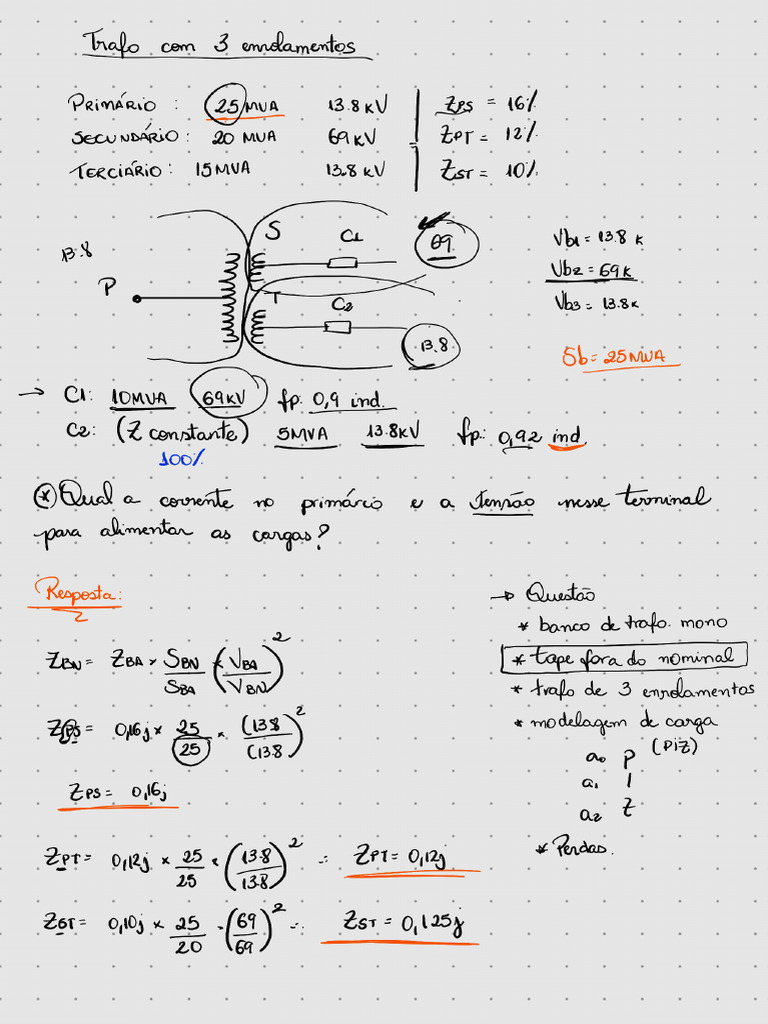 Trafo com 3 enrolamentos
PRIMÁRIO : 25 MVA 13.8 kV ZPS = 16%
SECUNDÁRIO: 20 MVA 69 kV ZPT = 12%
TERCIÁRIO: 15 MVA 13.8 kV ZST = 10%
13.8
P
S
C1
69
T
C2
13.8
Vb1 = 13.8 k
Vb2 = 69k
Vb3 = 13.8k
Sb = 25MVA
→ C1: 10MVA 69kV fp: 0,9 ind.
C2: (Z constante) 5MVA 13.8kV fp: 0,92 ind.
100%
* Qual a corrente no primário e a tensão nesse terminal
para alimentar as cargas?
Resposta:
ZBN = ZBA × SBN/SBA × (VBA/VBN)²
ZPS = 0,16j × 25/25 × (13.8/13.8)²
ZPS = 0,16j
ZPT = 0,12j × 25/25 × (13.8/13.8)² ∴ ZPT = 0,12j
ZST = 0,10j × 25/20 · (69/69)² ∴ ZST = 0,125j
→ Questão
* banco de trafo. mono
* tape fora do nominal
* trafo de 3 enrolamentos
* modelagem de carga
(PIZ)
a0 P
a1 I
a2 Z
* Perdas.